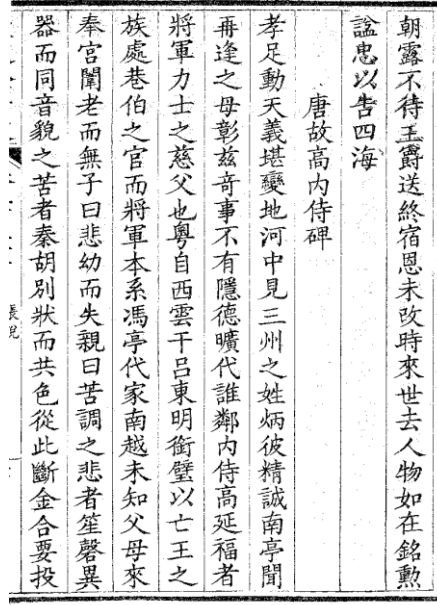 朝露不待王爵送終宿恩未改時來世去人物如在銘勲
諡忠以告四海
唐故高内侍碑
孝足動天義堪變地河中見三州之姓炳彼精誠南亭聞
再逢之母彰兹奇事不有隱德曠代誰鄰内侍高延福者
將軍力士之慈父也粤自西雲干吕東明銜璧以亡王之
族處巷伯之官而將軍本系馮亭代家南越未知父母來
奉宫闈老而無子曰悲幼而失親曰苦調之悲者笙磬異
器而同音貌之苦者秦胡別狀而共色從此斷金合要投